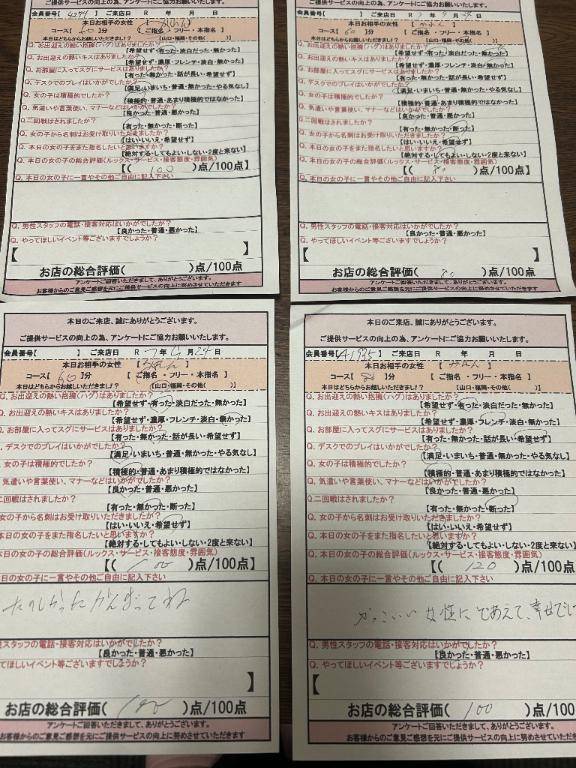 ご提供サービスの向上の為、アンケートにご協力お願いいたします。
会員番号【4244】 ご来店日 R 年 月 日
本日お相手の女性【
コース【60】分 【ご指名・フリー・本指名】
本日はどちらからお越しいただきました？【山口・福岡・その他( )】
Q. お出迎えの熱い抱擁(ハグ)はありましたか？
【希望せず・有った・淡白だった・無かった】
Q. お出迎えの熱いキスはありましたか？
【希望せず・濃厚・フレンチ・淡白・無かった】
Q. お部屋に入ってスグにサービスはありましたか？
【有った・無かった・話が長い・希望せず】
Q. デスクでのプレイはいかがでしたか？
【満足・いまいち・普通・無かった・やる気なし】
Q. 女の子は積極的でしたか？
【積極的・普通・あまり積極的ではなかった】
Q. 気遣いや言葉使い、マナーなどはいかがでしたか？
【良かった・普通・悪かった】
Q. 二回戦はされましたか？
【有った・無かった・断った】
Q. 女の子から名刺はお受け取りいただきましたか？
【はい・いいえ・希望せず】
Q. 本日の女の子をまた指名したいと思いますか？
【絶対する・してもよい・しない・2度と来ない】
Q. 本日の女の子の総合評価(ルックス・サービス・接客態度・雰囲気)
【( 100 )点/100点
Q. 本日の女の子に一言やその他ご自由に記入下さい
Q. 男性スタッフの電話・接客対応はいかがでしたか？
【良かった・普通・悪かった】
Q. やってほしいイベント等ございますでしょうか？
【 】
お店の総合評価( )点/100点
アンケートご回答いただきまして、ありがとうございます。
お客様からのご意見ご感想を元にご提供サービスの向上に努めさせていただきます
ご提供サービスの向上の為、アンケートにご協力お願いいたします。
会員番号【 】 ご来店日 R 年 月 日
本日お相手の女性【
コース【60】分 【ご指名・フリー・本指名】
本日はどちらからお越しいただきました？【山口・福岡・その他( )】
Q. お出迎えの熱い抱擁(ハグ)はありましたか？
【希望せず・有った・淡白だった・無かった】
Q. お出迎えの熱いキスはありましたか？
【希望せず・濃厚・フレンチ・淡白・無かった】
Q. お部屋に入ってスグにサービスはありましたか？
【有った・無かった・話が長い・希望せず】
Q. デスクでのプレイはいかがでしたか？
【満足・いまいち・普通・無かった・やる気なし】
Q. 女の子は積極的でしたか？
【積極的・普通・あまり積極的ではなかった】
Q. 気遣いや言葉使い、マナーなどはいかがでしたか？
【良かった・普通・悪かった】
Q. 二回戦はされましたか？
【有った・無かった・断った】
Q. 女の子から名刺はお受け取りいただきましたか？
【はい・いいえ・希望せず】
Q. 本日の女の子をまた指名したいと思いますか？
【絶対する・してもよい・しない・2度と来ない】
Q. 本日の女の子の総合評価(ルックス・サービス・接客態度・雰囲気)
【( 80 )点/100点
Q. 本日の女の子に一言やその他ご自由に記入下さい
Q. 男性スタッフの電話・接客対応はいかがでしたか？
【良かった・普通・悪かった】
Q. やってほしいイベント等ございますでしょうか？
【 】
お店の総合評価( 80 )点/100点
アンケートご回答いただきまして、ありがとうございます。
お客様からのご意見ご感想を元にご提供サービスの向上に努めさせていただきます
本日のご来店、誠にありがとうございます。
ご提供サービスの向上の為、アンケートにご協力お願いいたします。
会員番号【 】 ご来店日 R 7 年 月 24 日
本日お相手の女性【
コース【60】分 【ご指名・フリー・本指名】
本日はどちらからお越しいただきました？【山口・福岡・その他( )】
. お出迎えの熱い抱擁(ハグ)はありましたか？
【希望せず・有った・淡白だった・無かった】
. お出迎えの熱いキスはありましたか？
【希望せず・濃厚・フレンチ・淡白・無かった】
. お部屋に入ってスグにサービスはありましたか？
【有った・無かった・話が長い・希望せず】
. デスクでのプレイはいかがでしたか？
【満足・いまいち・普通・無かった・やる気なし】
. 女の子は積極的でしたか？
【積極的・普通・あまり積極的ではなかった】
. 気遣いや言葉使い、マナーなどはいかがでしたか？
【良かった・普通・悪かった】
二回戦はされましたか？
【有った・無かった・断った】
女の子から名刺はお受け取りいただきましたか？
【はい・いいえ・希望せず】
本日の女の子をまた指名したいと思いますか？
【絶対する・してもよい・しない・2度と来ない】
本日の女の子の総合評価(ルックス・サービス・接客態度・雰囲気)
【( 100 )点/100点
日の女の子に一言やその他ご自由に記入下さい
たのしかった がんばってね
性スタッフの電話・接客対応はいかがでしたか？
【良かった・普通・悪かった】
てほしいイベント等ございますでしょうか？
お店の総合評価( 100 )点/100点
アンケートご回答いただきまして、ありがとうございます。
お客様からのご意見ご感想を元にご提供サービスの向上に努めさせていただきます
本日のご来店、誠にありがとうございます。
ご提供サービスの向上の為、アンケートにご協力お願いいたします。
会員番号【A1985】 ご来店日 R 年 月 日
本日お相手の女性【
コース【 】分 【ご指名・フリー・本指名】
本日はどちらからお越しいただきました？【山口・福岡・その他( )】
Q. お出迎えの熱い抱擁(ハグ)はありましたか？
【希望せず・有った・淡白だった・無かった】
Q. お出迎えの熱いキスはありましたか？
【希望せず・濃厚・フレンチ・淡白・無かった】
Q. お部屋に入ってスグにサービスはありましたか？
【有った・無かった・話が長い・希望せず】
Q. デスクでのプレイはいかがでしたか？
【満足・いまいち・普通・無かった・やる気なし】
Q. 女の子は積極的でしたか？
【積極的・普通・あまり積極的ではなかった】
Q. 気遣いや言葉使い、マナーなどはいかがでしたか？
【良かった・普通・悪かった】
Q. 二回戦はされましたか？
【有った・無かった・断った】
Q. 女の子から名刺はお受け取りいただきましたか？
【はい・いいえ・希望せず】
Q. 本日の女の子をまた指名したいと思いますか？
【絶対する・してもよい・しない・2度と来ない】
Q. 本日の女の子の総合評価(ルックス・サービス・接客態度・雰囲気)
【( 120 )点/100点
Q. 本日の女の子に一言やその他ご自由に記入下さい
かっこいい 女性に であえて、幸せでし
Q. 男性スタッフの電話・接客対応はいかがでしたか？
【良かった・普通・悪かった】
Q. やってほしいイベント等ございますでしょうか？
【
お店の総合評価( 100 )点/100点
アンケートご回答いただきまして、ありがとうございます。
お客様からのご意見ご感想を元にご提供サービスの向上に努めさせていただきま